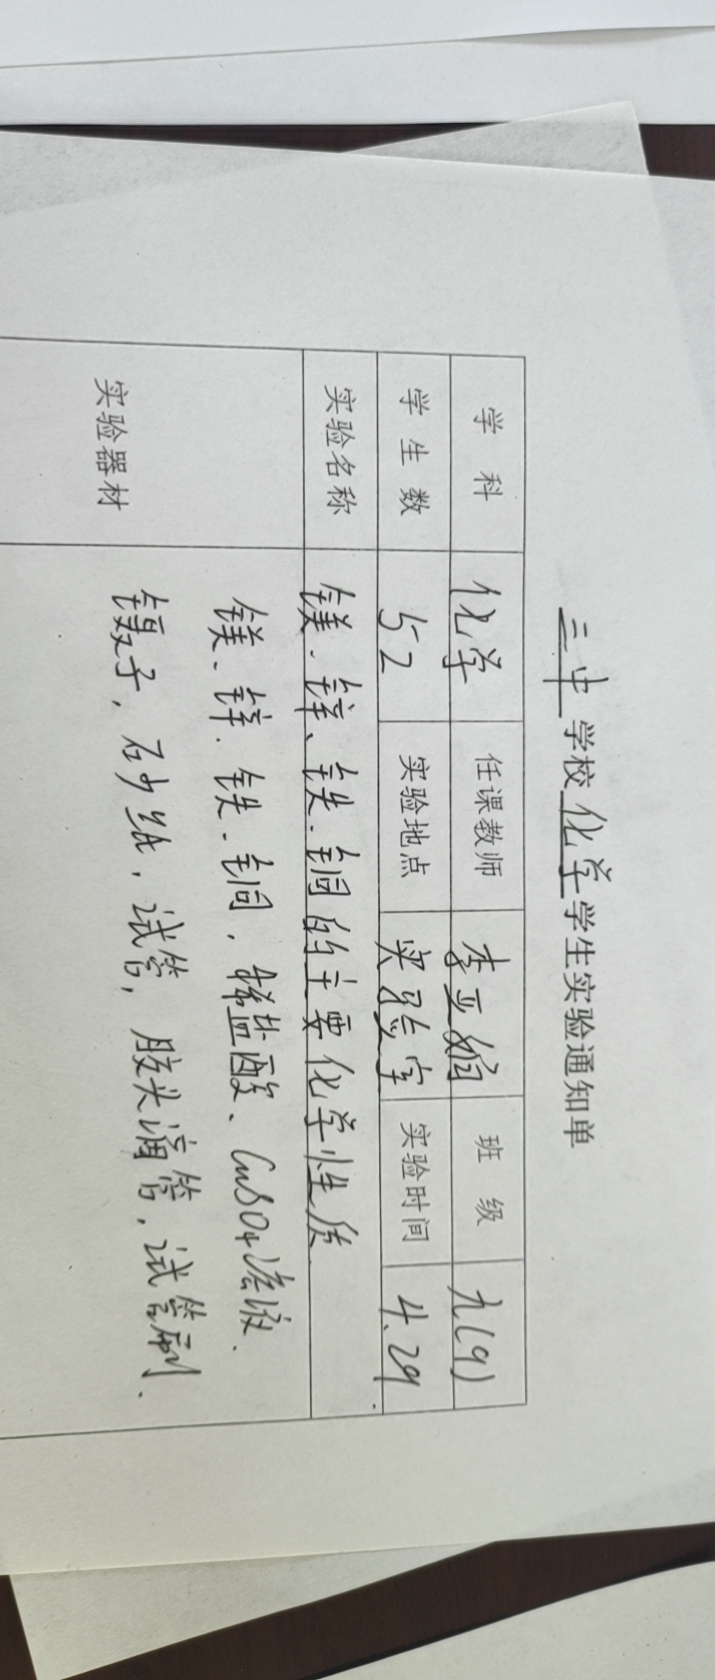 三中学校化学学生实验通知单
学科 化学 任课教师 李亚娟 班级 九(9)
学生数 52 实验地点 实验室 实验时间 4.29
实验名称 镁、锌、铁、铜的主要化学性质
实验器材 镁、锌、铁、铜,稀盐酸、CuSO4溶液、
镊子,砂纸,试管,胶头滴管,试管刷、